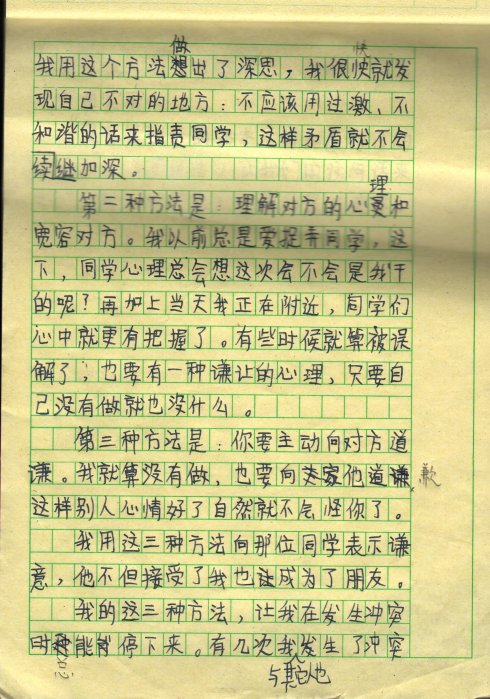 做 快
我用这个方法想出了深思，我很快就发
现自己不对的地方：不应该用过激、不
和谐的话来指责同学，这样矛盾就不会
续继加深。
理
第二种方法是：理解对方的心里和
宽容对方。我以前总是爱捉弄同学，这
下，同学心理总会想这次会不会是我干
的呢？再加上当天我正在附近，同学们
心中就更有把握了。有些时候就算被误
解了，也要有一种谦让的心理，只要自
己没有做就也没什么。
第三种方法是：你要主动向对方道
谦。我就算没有做，也要向他道谦， 歉
这样别人心情好了自然就不会怪你了。
我用这三种方法向那位同学表示谦
意，他不但接受了我也成为了朋友。
我的这三种方法，让我在发生冲突
时能停下来。有几次我发生了冲突
与其他